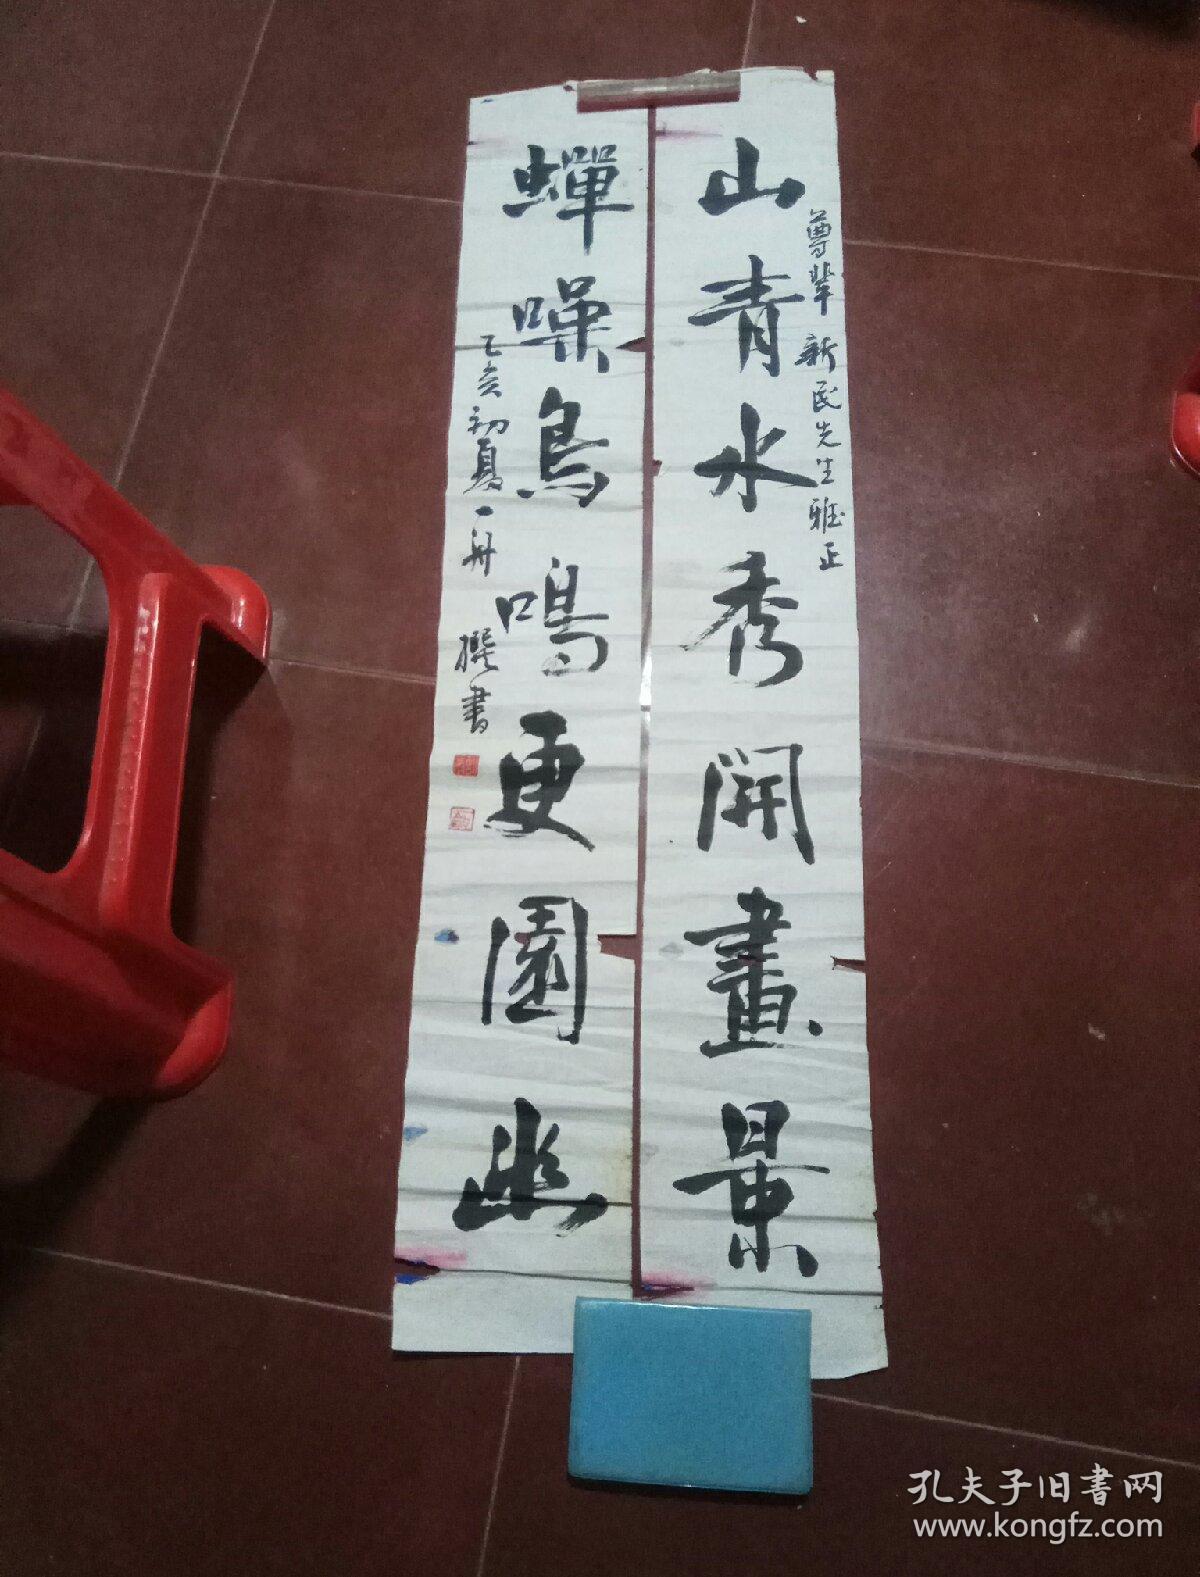 尊輩 新民先生雅正
山青水秀開畫景
蟬噪鳥鳴更園幽
乙亥初夏一舟撰書
孔夫子旧书网
www.kongfz.com